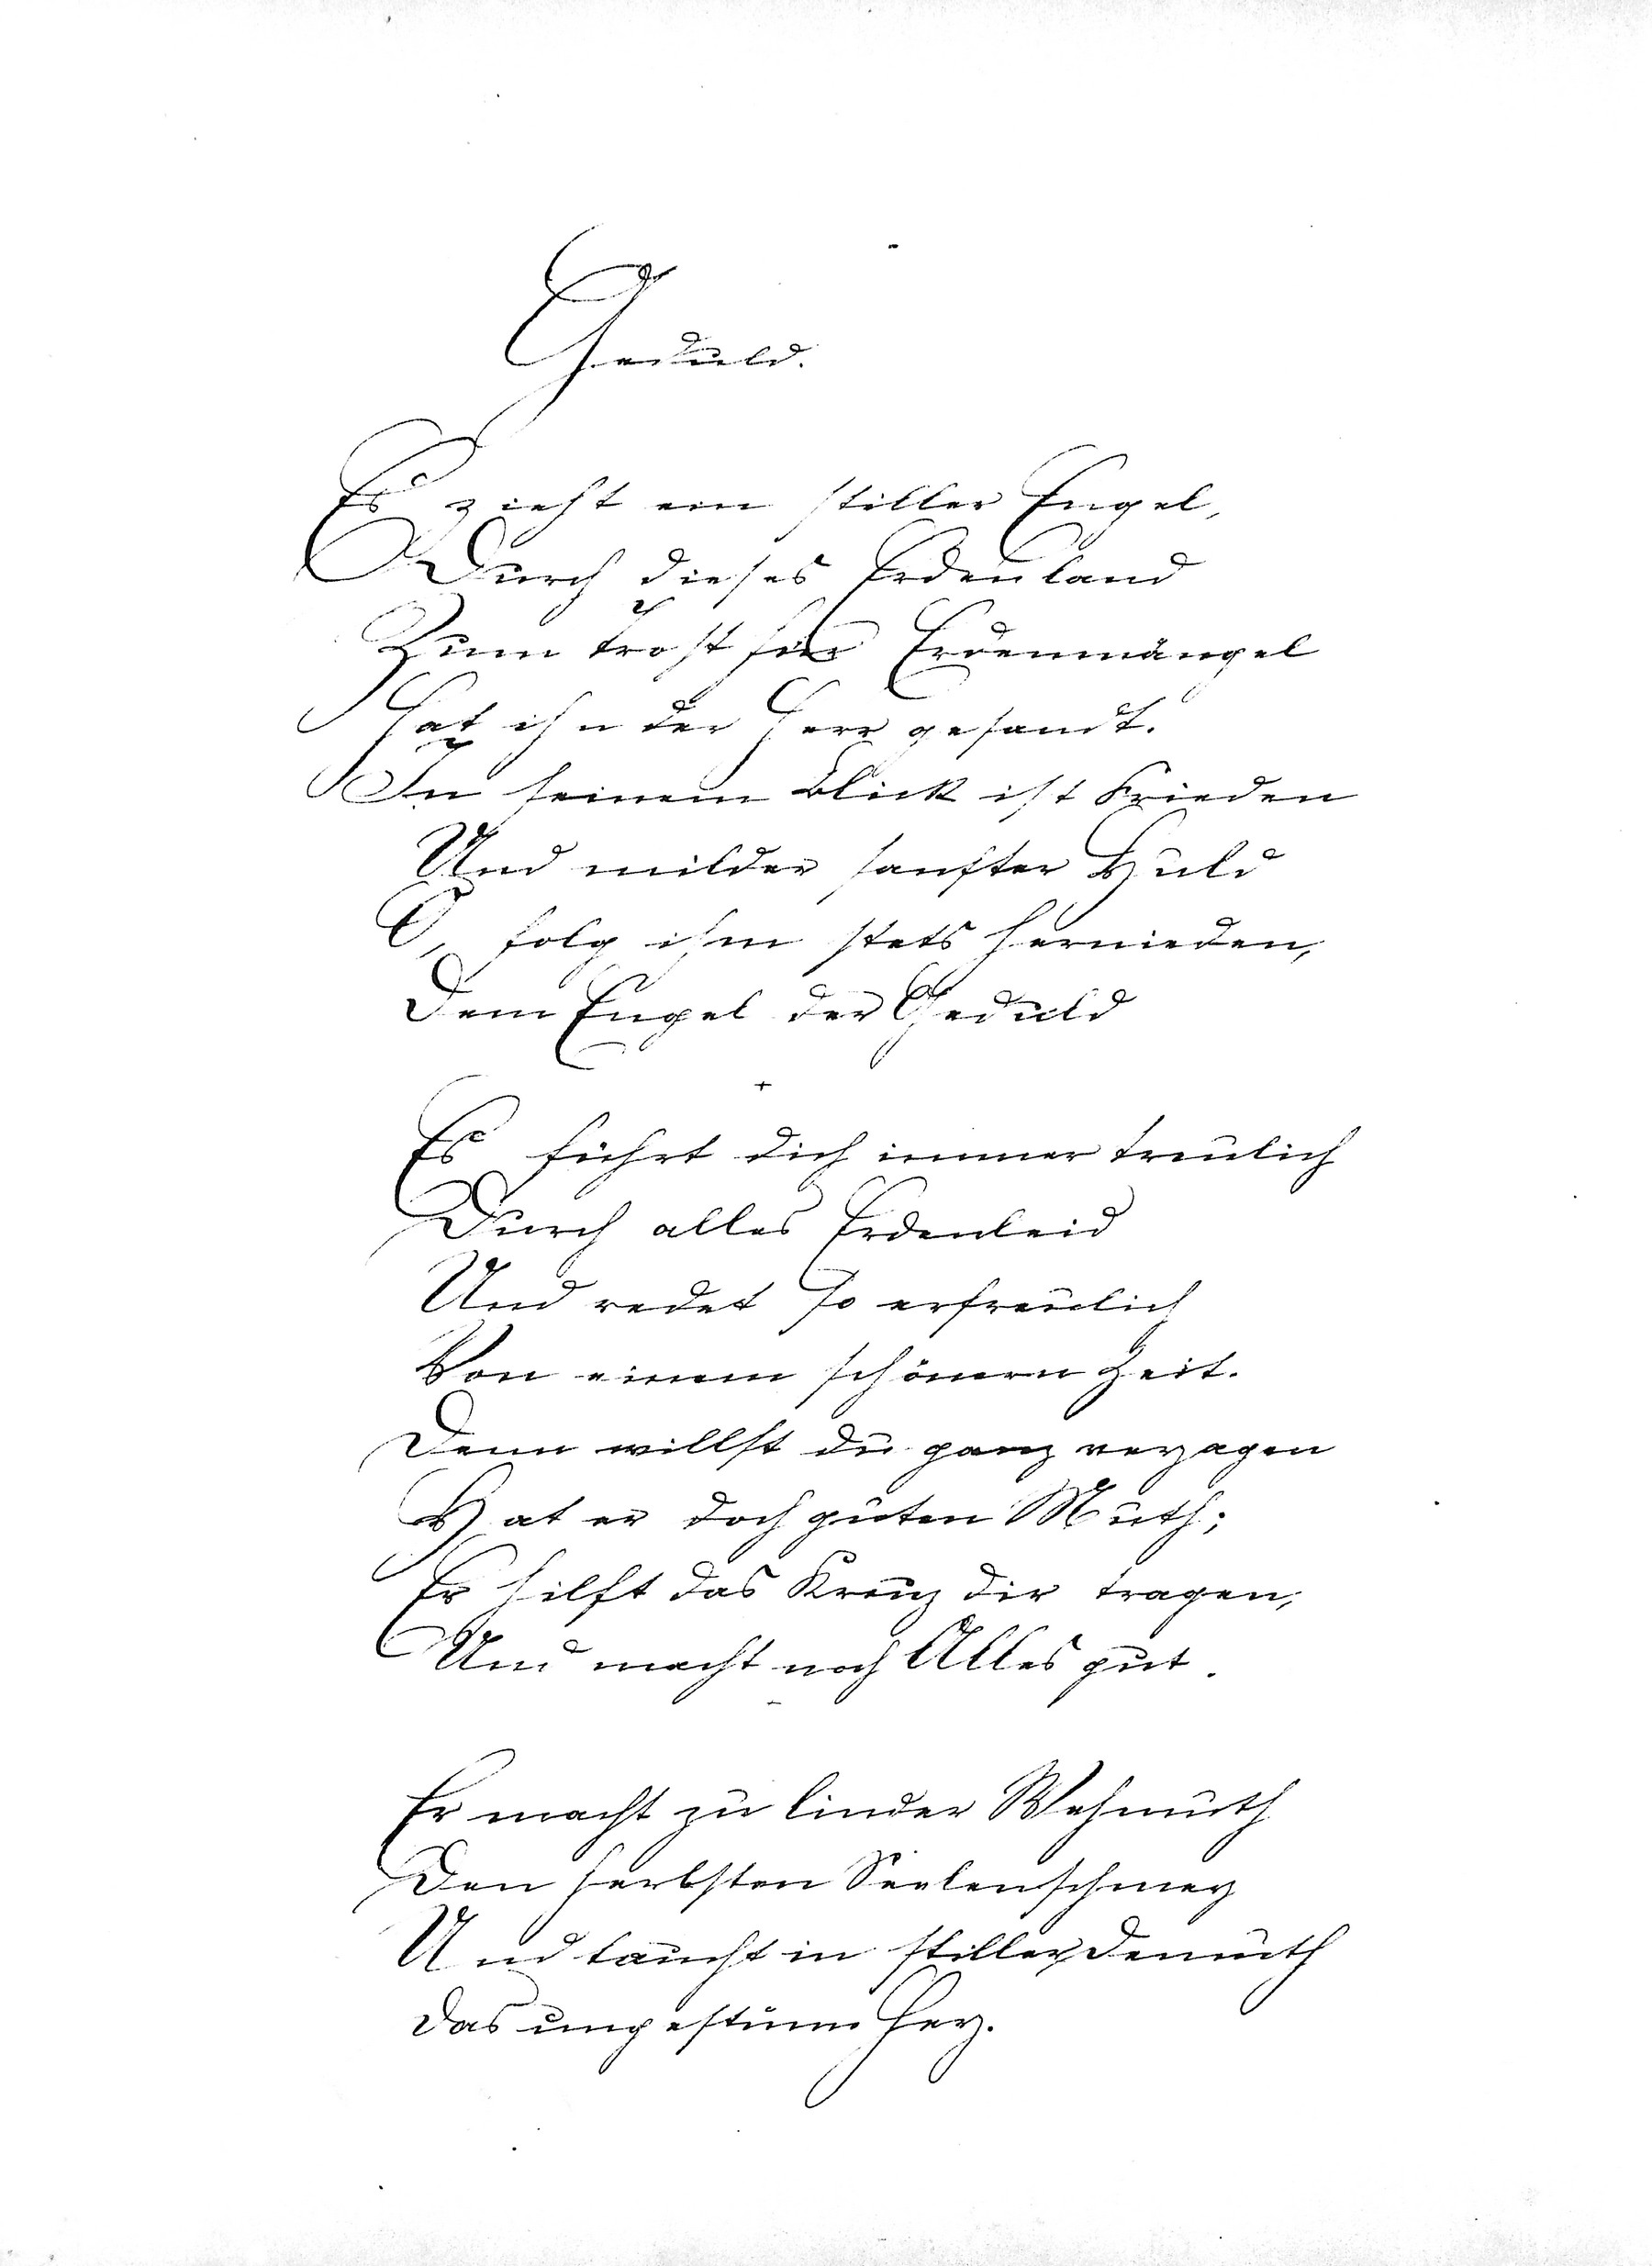 Geduld.
Es zieht ein stiller Engel,
Durch dieses Erdenland
Zum Trost für Erdenmängel
Hat ihn der Herr gesandt.
In seinem Blick ist Frieden
Und milder sanfter Huld
O, folg ihm stets hernieden,
Dem Engel der Geduld
+
Es führt dich immer treulich
Durch alles Erdenleid
Und redet so erfreulich
Von einem schönern Zeit.
Denn willst du ganz verzagen
Hat er doch guten Muth;
Er hilft das Kreuz dir tragen,
Und macht noch Alles gut.
Er macht zu linder Wehmuth
Den herbsten Seelenschmerz
Und taucht in stiller Demuth
Das ungestüme Herz.